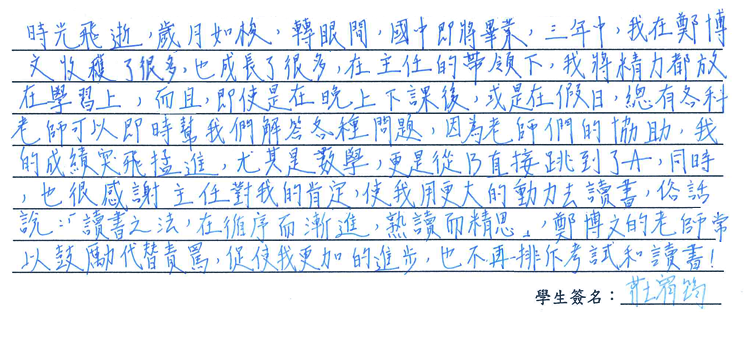 時光飛逝，歲月如梭，轉眼間，國中即將畢業，三年中，我在鄭博
文收穫了很多，也成長了很多，在主任的帶領下，我將精力都放
在學習上，而且，即使是在晚上下課後，或是在假日，總有各科
老師可以即時幫我們解答各種問題，因為老師們的協助，我
的成績突飛猛進，尤其是數學，更是從B直接跳到了A，同時
，也很感謝主任對我的肯定，使我用更大的動力去讀書，俗話
說：「讀書之法，在循序而漸進，熟讀而精思」，鄭博文的老師常
以鼓勵代替責罵，促使我更加的進步，也不再排斥考試和讀書！
學生簽名：莊